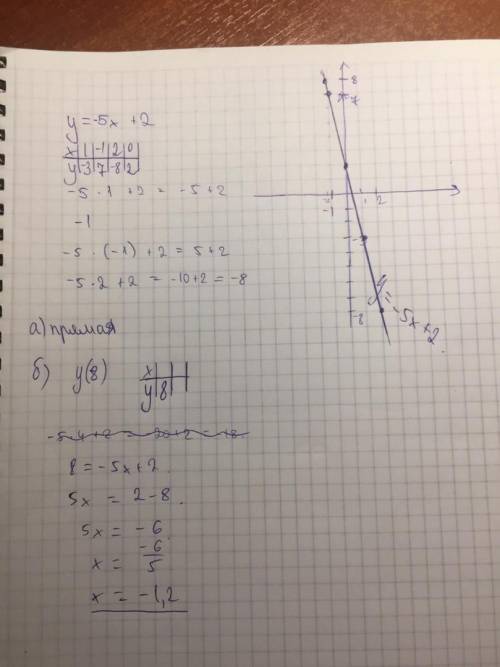 y = -5x + 2
x | 1 | -1 | 2 | 0
y | -3 | 7 | -8 | 2
-5 · 1 + 2 = -5 + 2
-1
-5 · (-1) + 2 = 5 + 2
-5 · 2 + 2 = -10 + 2 = -8
а) прямая
б) y(8)
x | |
y | 8 |
8 = -5x + 2
5x = 2 - 8
5x = -6
x = -6/5
x = -1,2
8
7
-1 2
-3
-8
y = -5x + 2